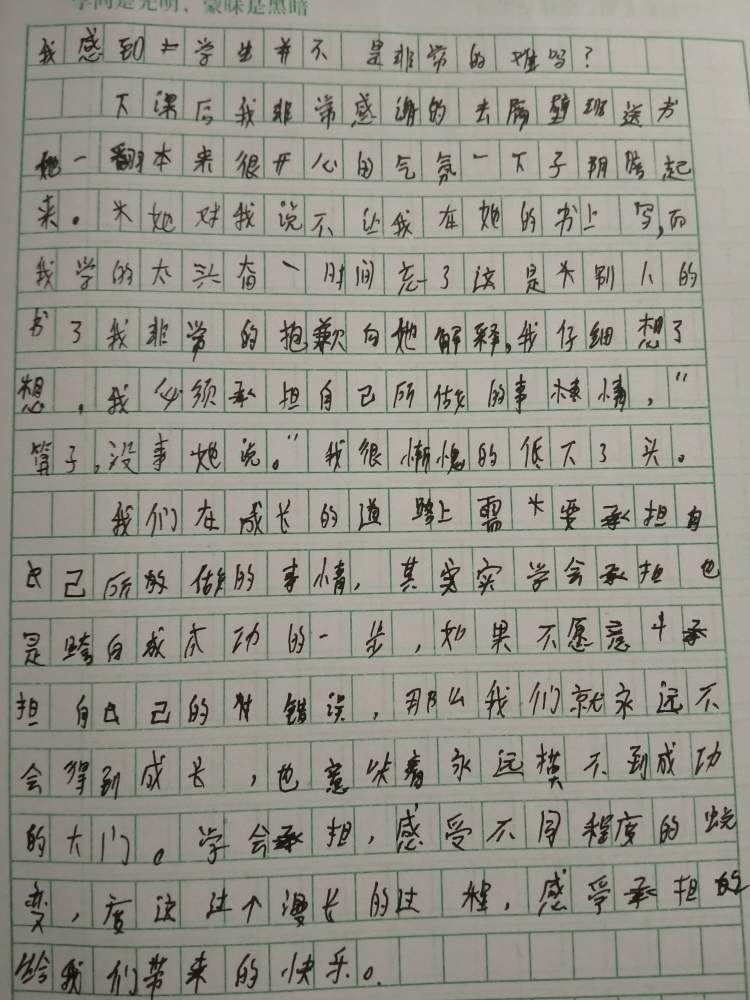 学问是光明，蒙昧是黑暗
我感到学生并不是非常的难吗？
下课后我非常感谢的去隔壁班送书
她一翻本来很开心的气氛一下子阴暗起
来。她对我说不让我在她的书上写，而
我学的太头奋一时间忘了这是别人的
书了我非常的抱歉向她解释，我仔细想了
想，我必须承担自己所做的事情，“
算了，没事她说。”我很惭愧的低下了头。
我们在成长的道路上需要承担自
己所做的事情，其实学会承担也
是跨向成功的一步，如果不愿意承
担自己的错误，那么我们就永远不
会得到成长，也意味着永远摸不到成功
的大门。学会承担，感受不同程度的蜕
变，度这过个漫长的过程，感受承担
给我们带来的快乐。